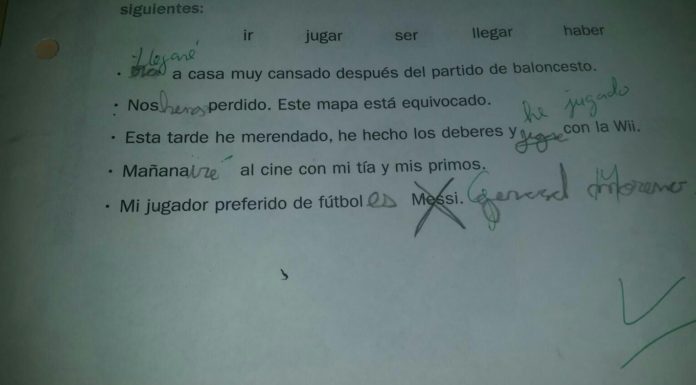 siguientes:
ir jugar ser llegar haber
llegaré
· a casa muy cansado después del partido de baloncesto.
· Nos hemos perdido. Este mapa está equivocado.
he jugado
· Esta tarde he merendado, he hecho los deberes y jugare con la Wii.
· Mañana iré al cine con mi tía y mis primos.
· Mi jugador preferido de fútbol es Messi. Gerard Moreno